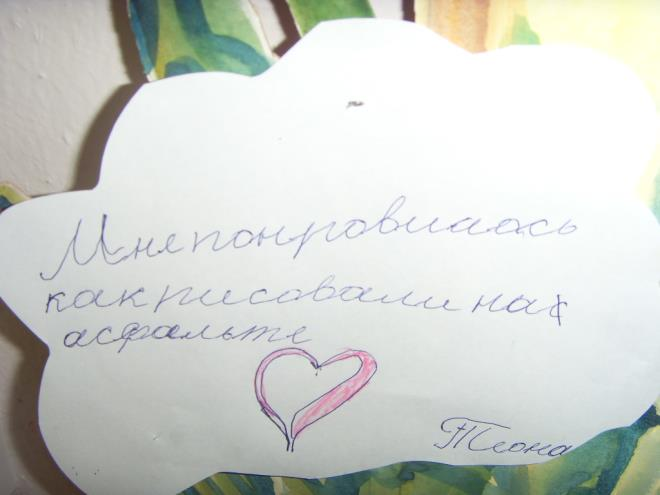 Мне понгровилась
как рисовали на
асфальте
Тиона